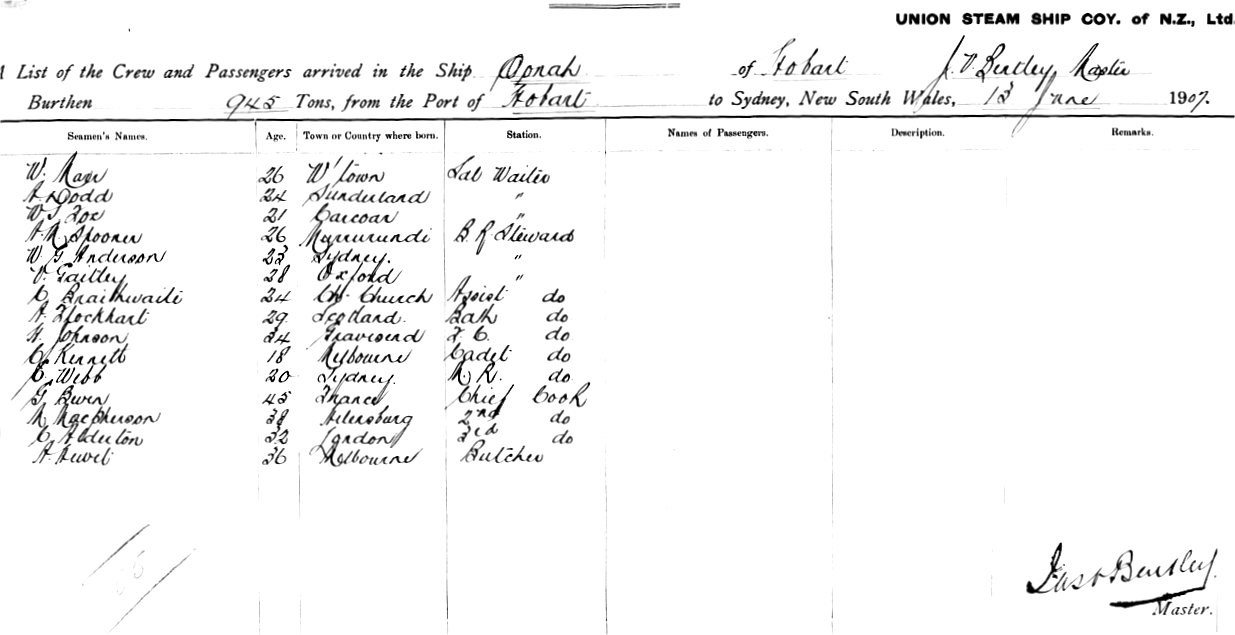 UNION STEAM SHIP COY. of N.Z., Ltd.
List of the Crew and Passengers arrived in the Ship Oonah of Hobart J. V. Bentley, Master
Burthen 945 Tons, from the Port of Hobart to Sydney, New South Wales, 13 June 1907.
Seamen's Names. Age. Town or Country where born. Station. Names of Passengers. Description. Remarks.
W. 26 W'town Sal Waiter
A Dodd 24 Sunderland "
W S Fox 21 Carcoar "
A M Spooner 26 Murrurundi B. R Steward
W. G Anderson 23 Sydney. "
V. 28 Oxford "
C Braithwaite 24 Ch. Church Assist do
A. Flockhart 29 Scotland. Bath do
H. Johnson 34 Gravesend F. C. do
C Kennett 18 Melbourne Cadet do
C. Webb 20 Sydney. M. R. do
G. 45 France Chief Cook
M Macpherson 38 Helensburg 2nd do
C Alderton 32 London 3rd do
A. Hewet 36 Melbourne Butcher
Bentley
Master.